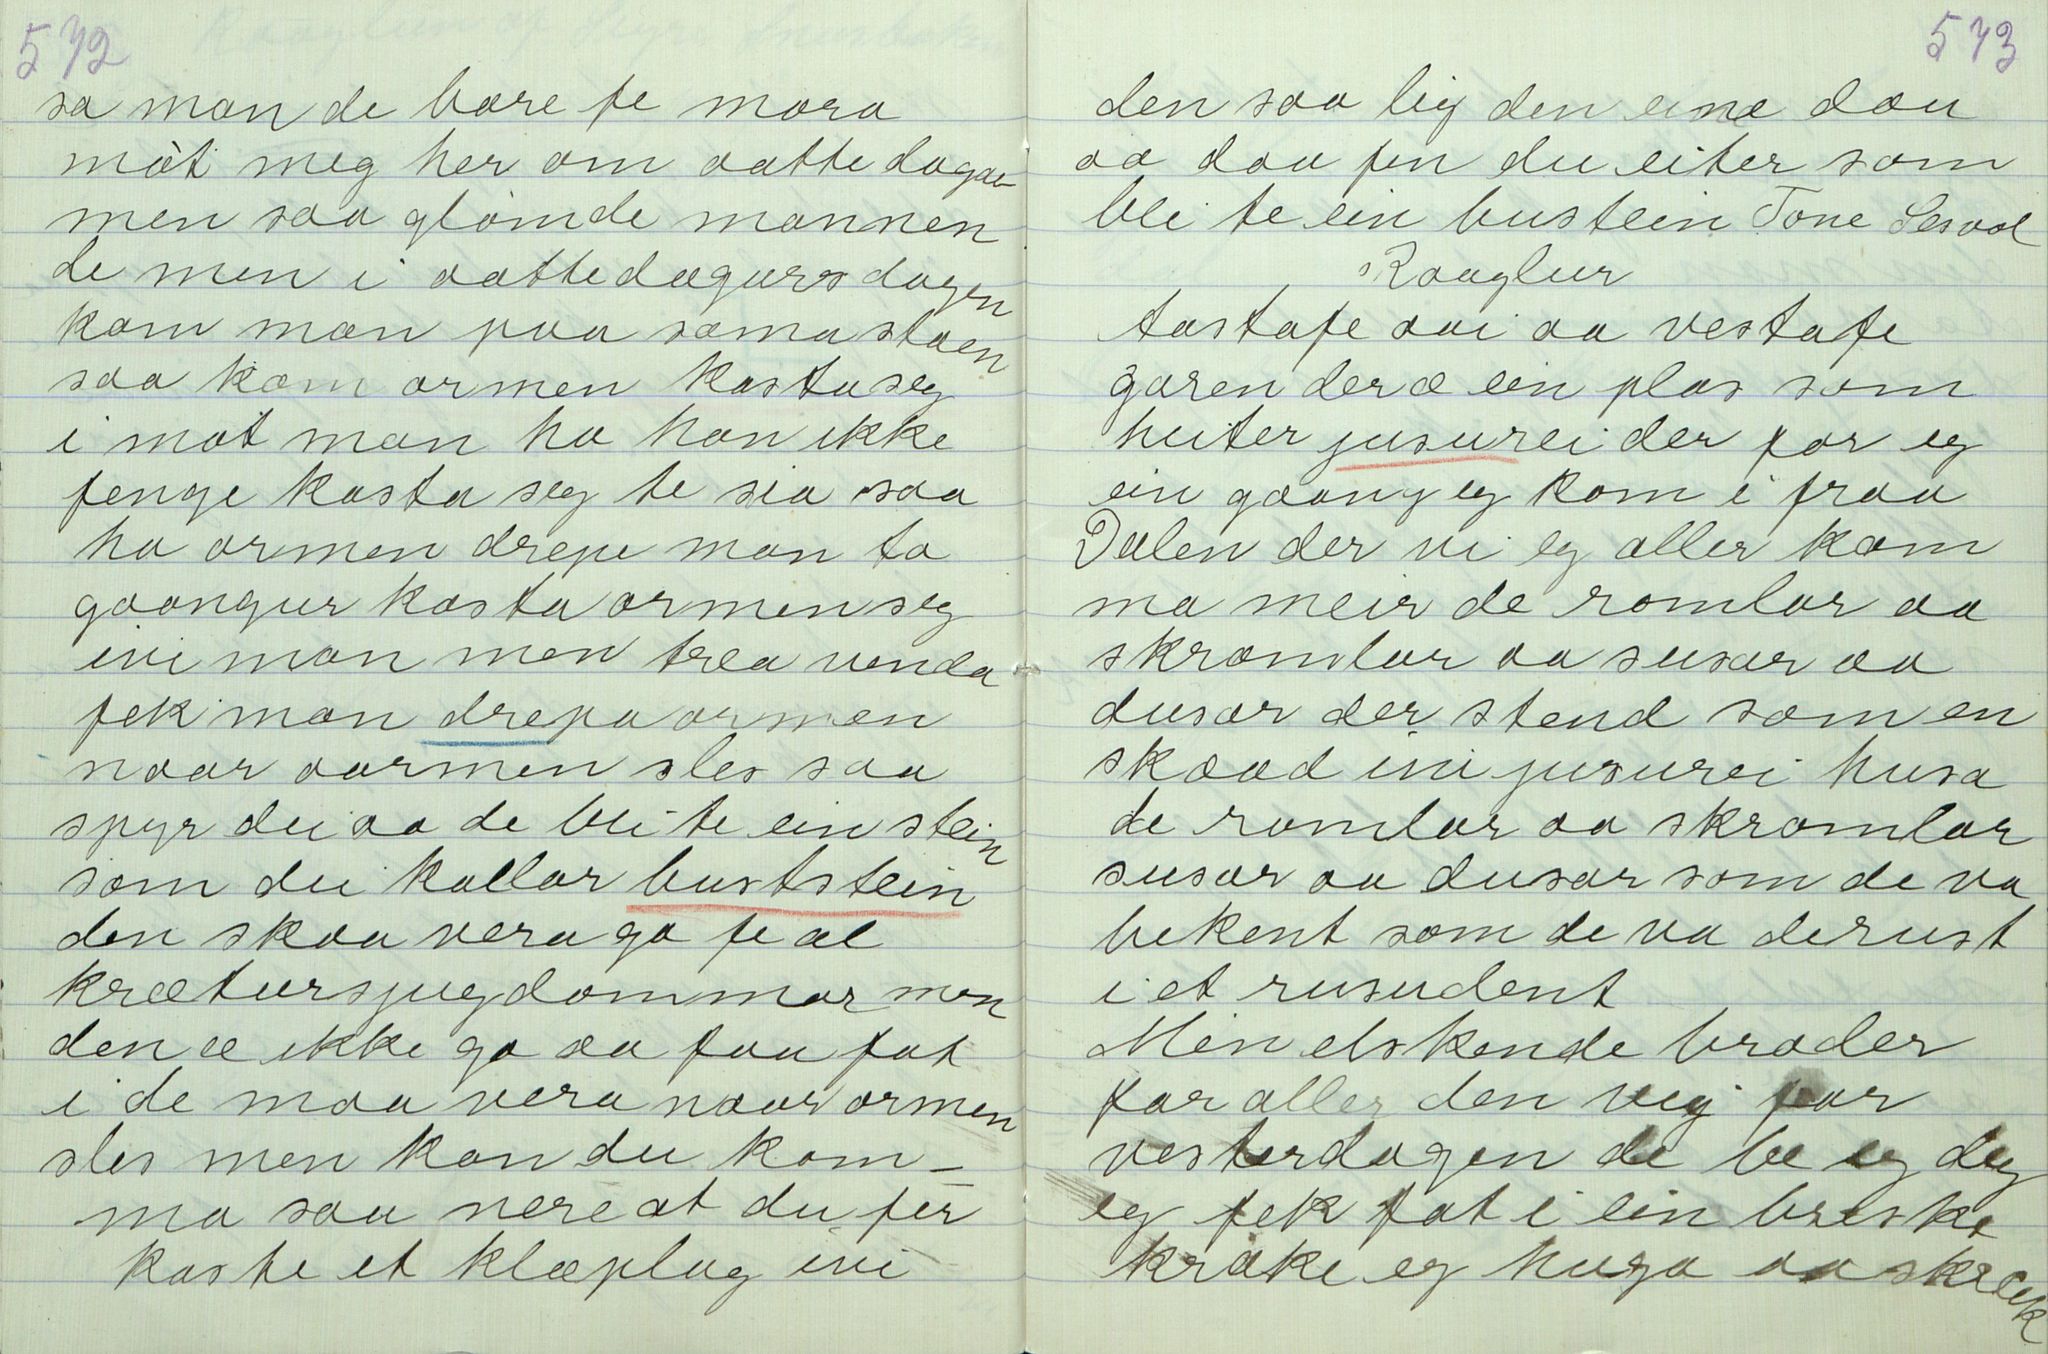 572
sa man de bare fe mora
møt meg her om aatte dagar
men saa glømde mannen
de men i aattedagursdagen
kom man paa sama staen
saa kom ormen kasta seg
i mot man ha han ikke
fenge kasta seg te sia saa
ha ormen drepe man to
gaangur kasta ormen seg
ivi man men trea venda
fek man drepa ormen
naar aarmen sles saa
spyr dei aa de bli te ein stein
som dei kallar buststein
den skaa vera go fe al
krætursjugdommar men
den æ ikke go aa faa fat
i de maa vera naar ormen
sles men kan du kom-
ma saa nere at du fer
kaste et klæplag ivi
573
den saa lig den eine dau
aa daa fen du eiter som
bli te ein bustein Tone Lesvol
Raaglur
tastafe aai aa vestafe
garen der æ ein plas som
heiter jusurei der for eg
ein gaang eg kom i fraa
Dalen der vi eg aller kom
ma meir de romlar aa
skromlar aa susar aa
dusar der stend som en
skaad ivi jusurei husa
de romlar aa skromlar
susar aa dusar som de va
bekent som de va derust
i et rusudent
Min elskende broder
far aller den veg for
vesterdagen de be eg deg
eg fek fat i ein breske
krake eg huga aa skreek